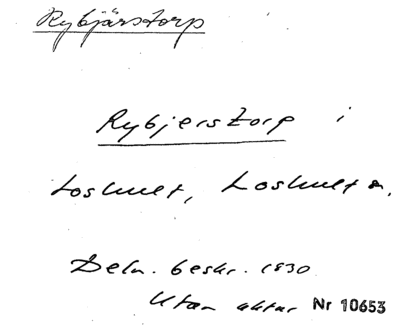 Rybjärstorp
Rybjerstorp i
Loshult, Loshult s.
Deln. beskr. 1830
Utan aktnr Nr 10653